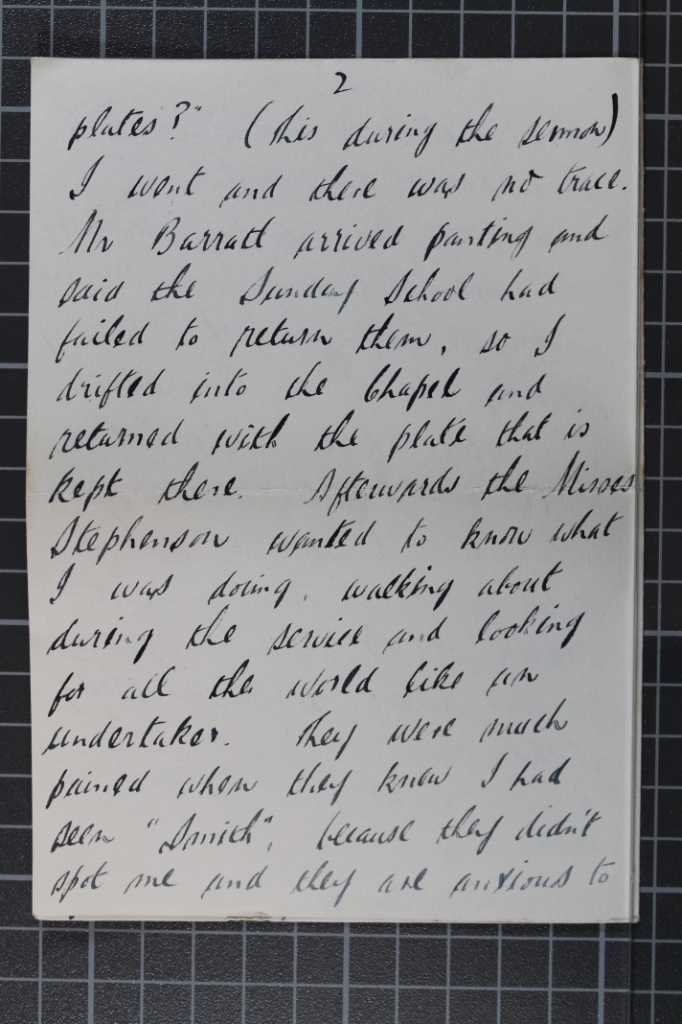 2
plates?" (this during the sermon)
I went and there was no trace.
Mr Barratt arrived panting and
said the Sunday School had
failed to return them, so I
drifted into the Chapel and
returned with the plate that is
kept there. Afterwards the Misses
Stephenson wanted to know what
I was doing, walking about
during the service and looking
for all the world like an
undertaker. They were much
pained when they knew I had
seen "Smith", because they didn't
spot me and they are anxious to